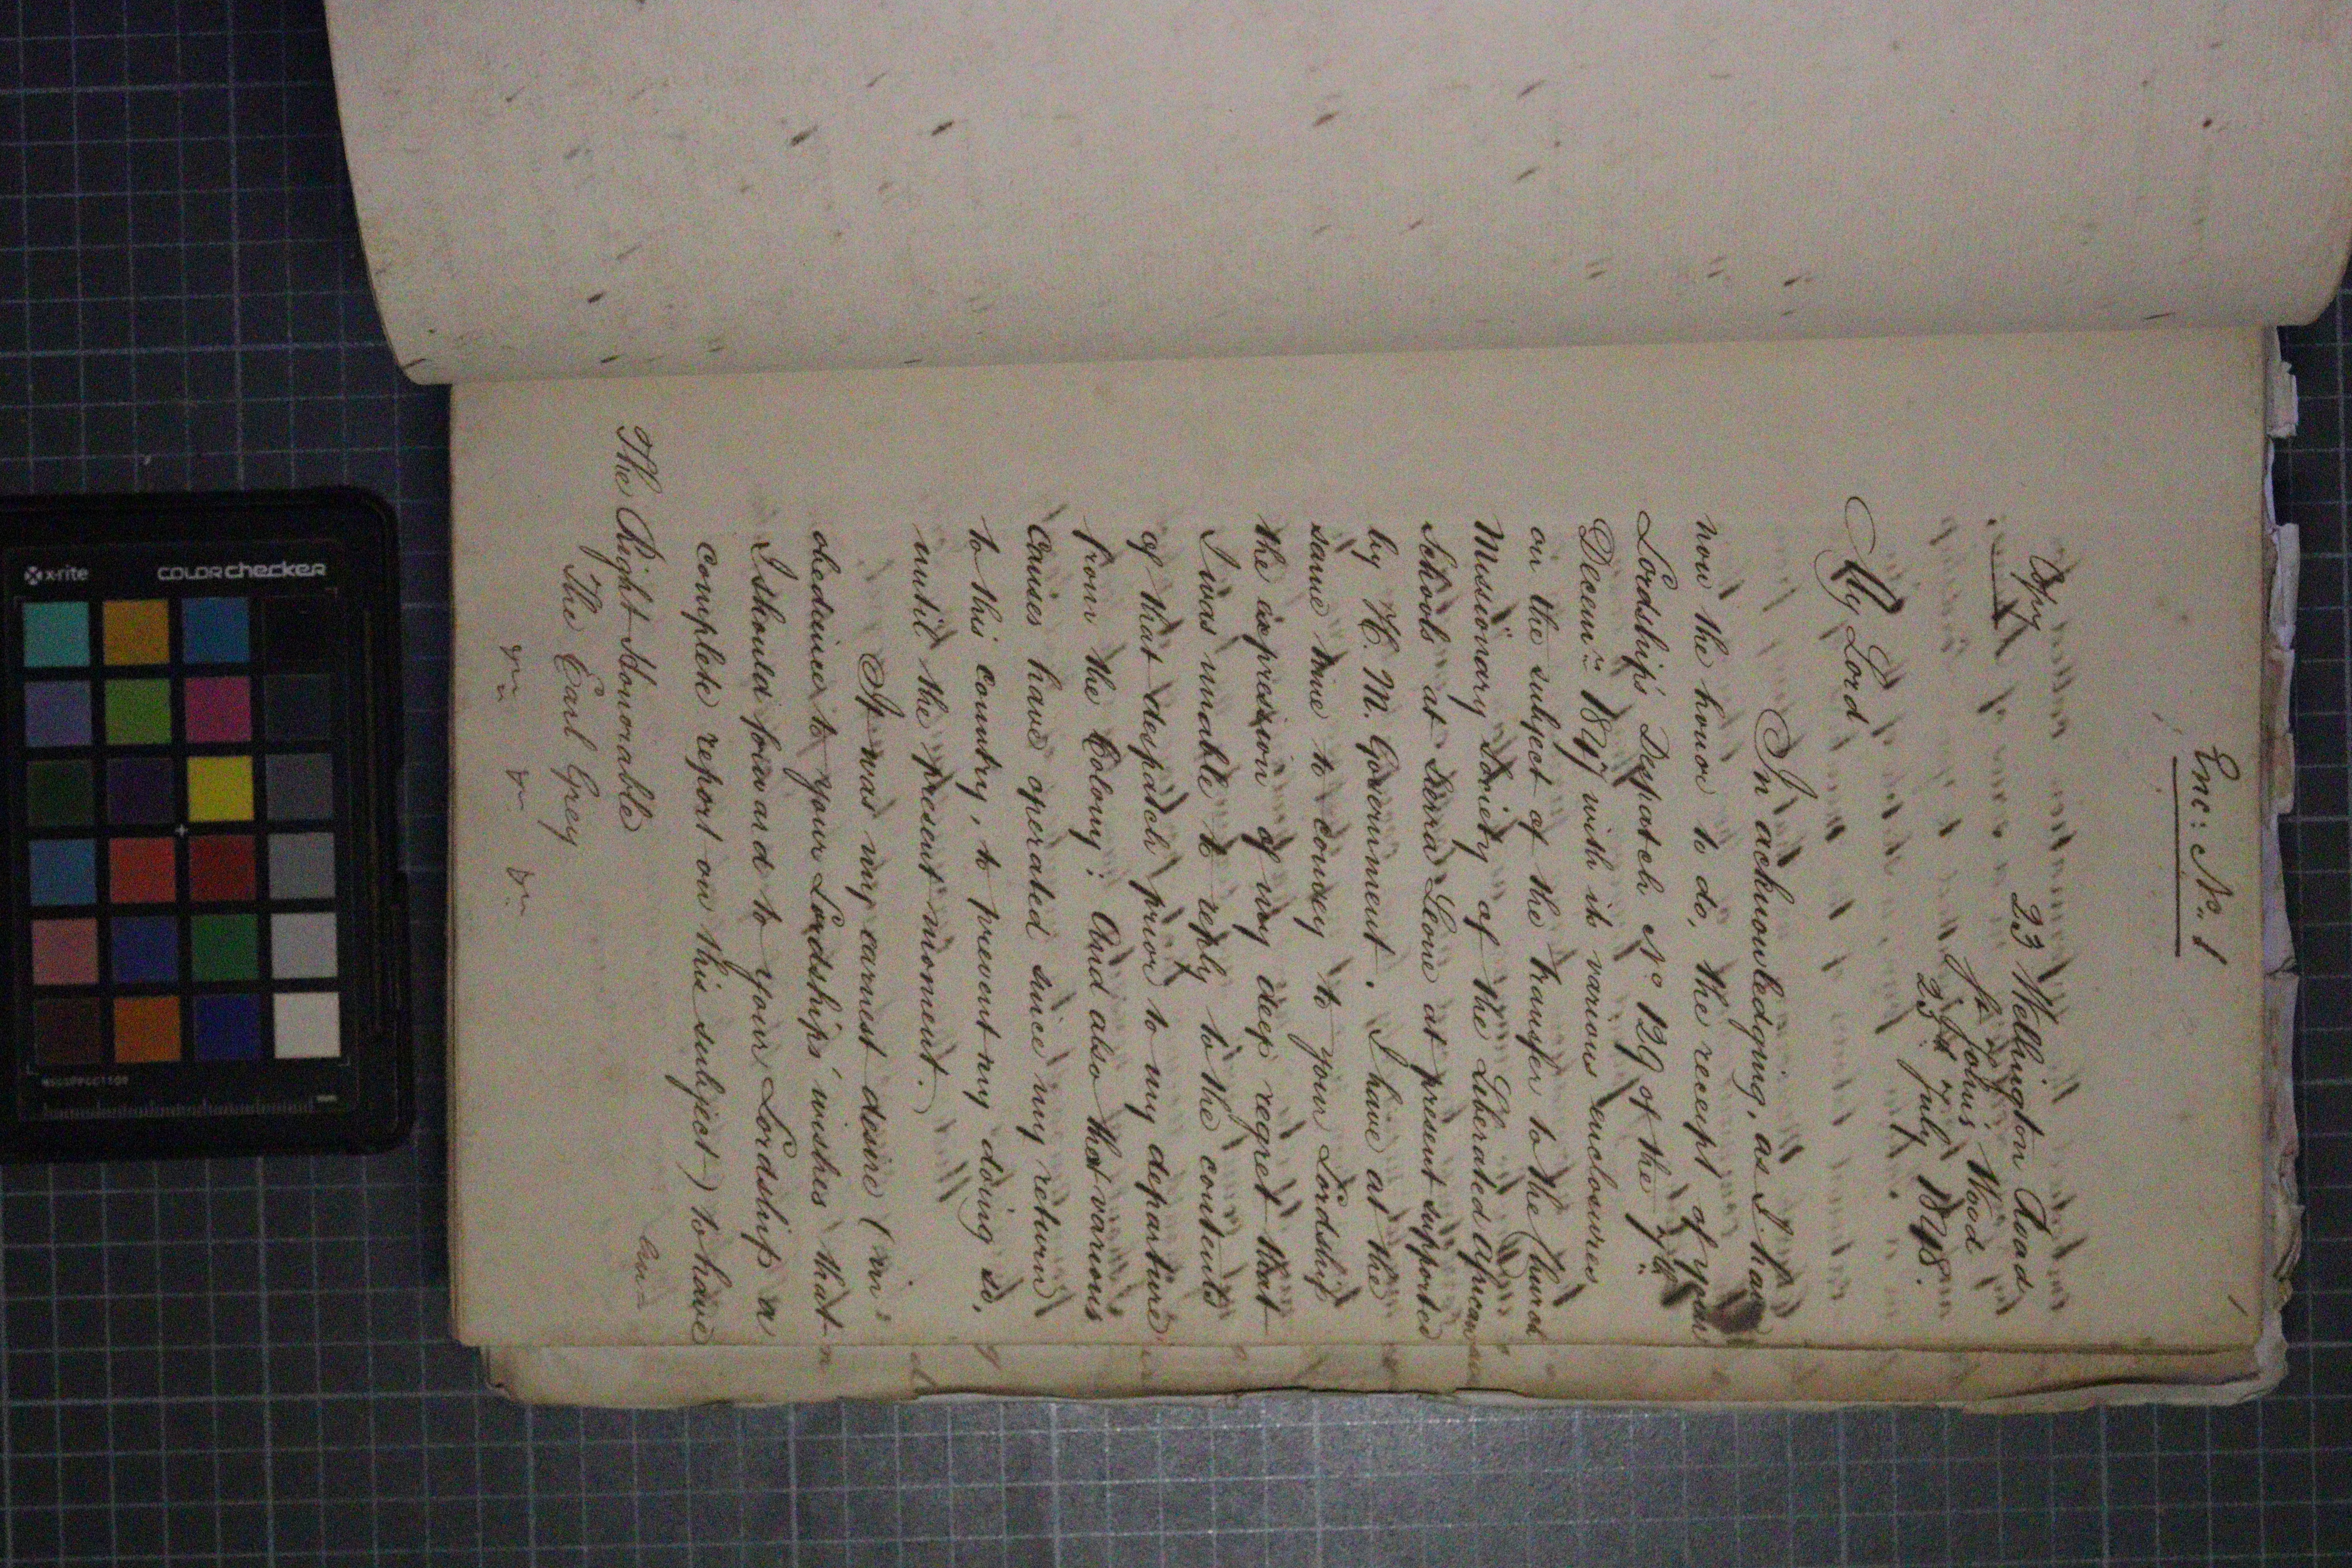 Enc: No. 1
Copy
23 Wellington Road
St. John's Wood
23d July 1848.
My Lord
In acknowledging, as I have
now the honor to do, the receipt of your
Lordship's Despatch No 129 of the 7th
Decemr 1847 with its various enclosures
on the subject of the transfer to the Church
Missionary Society of the Liberated African
Schools at Sierra Leone at present supported
by H. M. Government. I have at the
same time to convey to your Lordship
the expression of my deep regret that
I was unable to reply to the contents
of that despatch prior to my departure
from the Colony: And also that various
causes have operated since my return
to this country, to prevent my doing so,
until the present moment.
It was my earnest desire (in
obedience to your Lordship's wishes that
I should forward to your Lordship a
complete report on this subject) to have
The Right Honorable
The Earl Grey
x-rite
COLORchecker